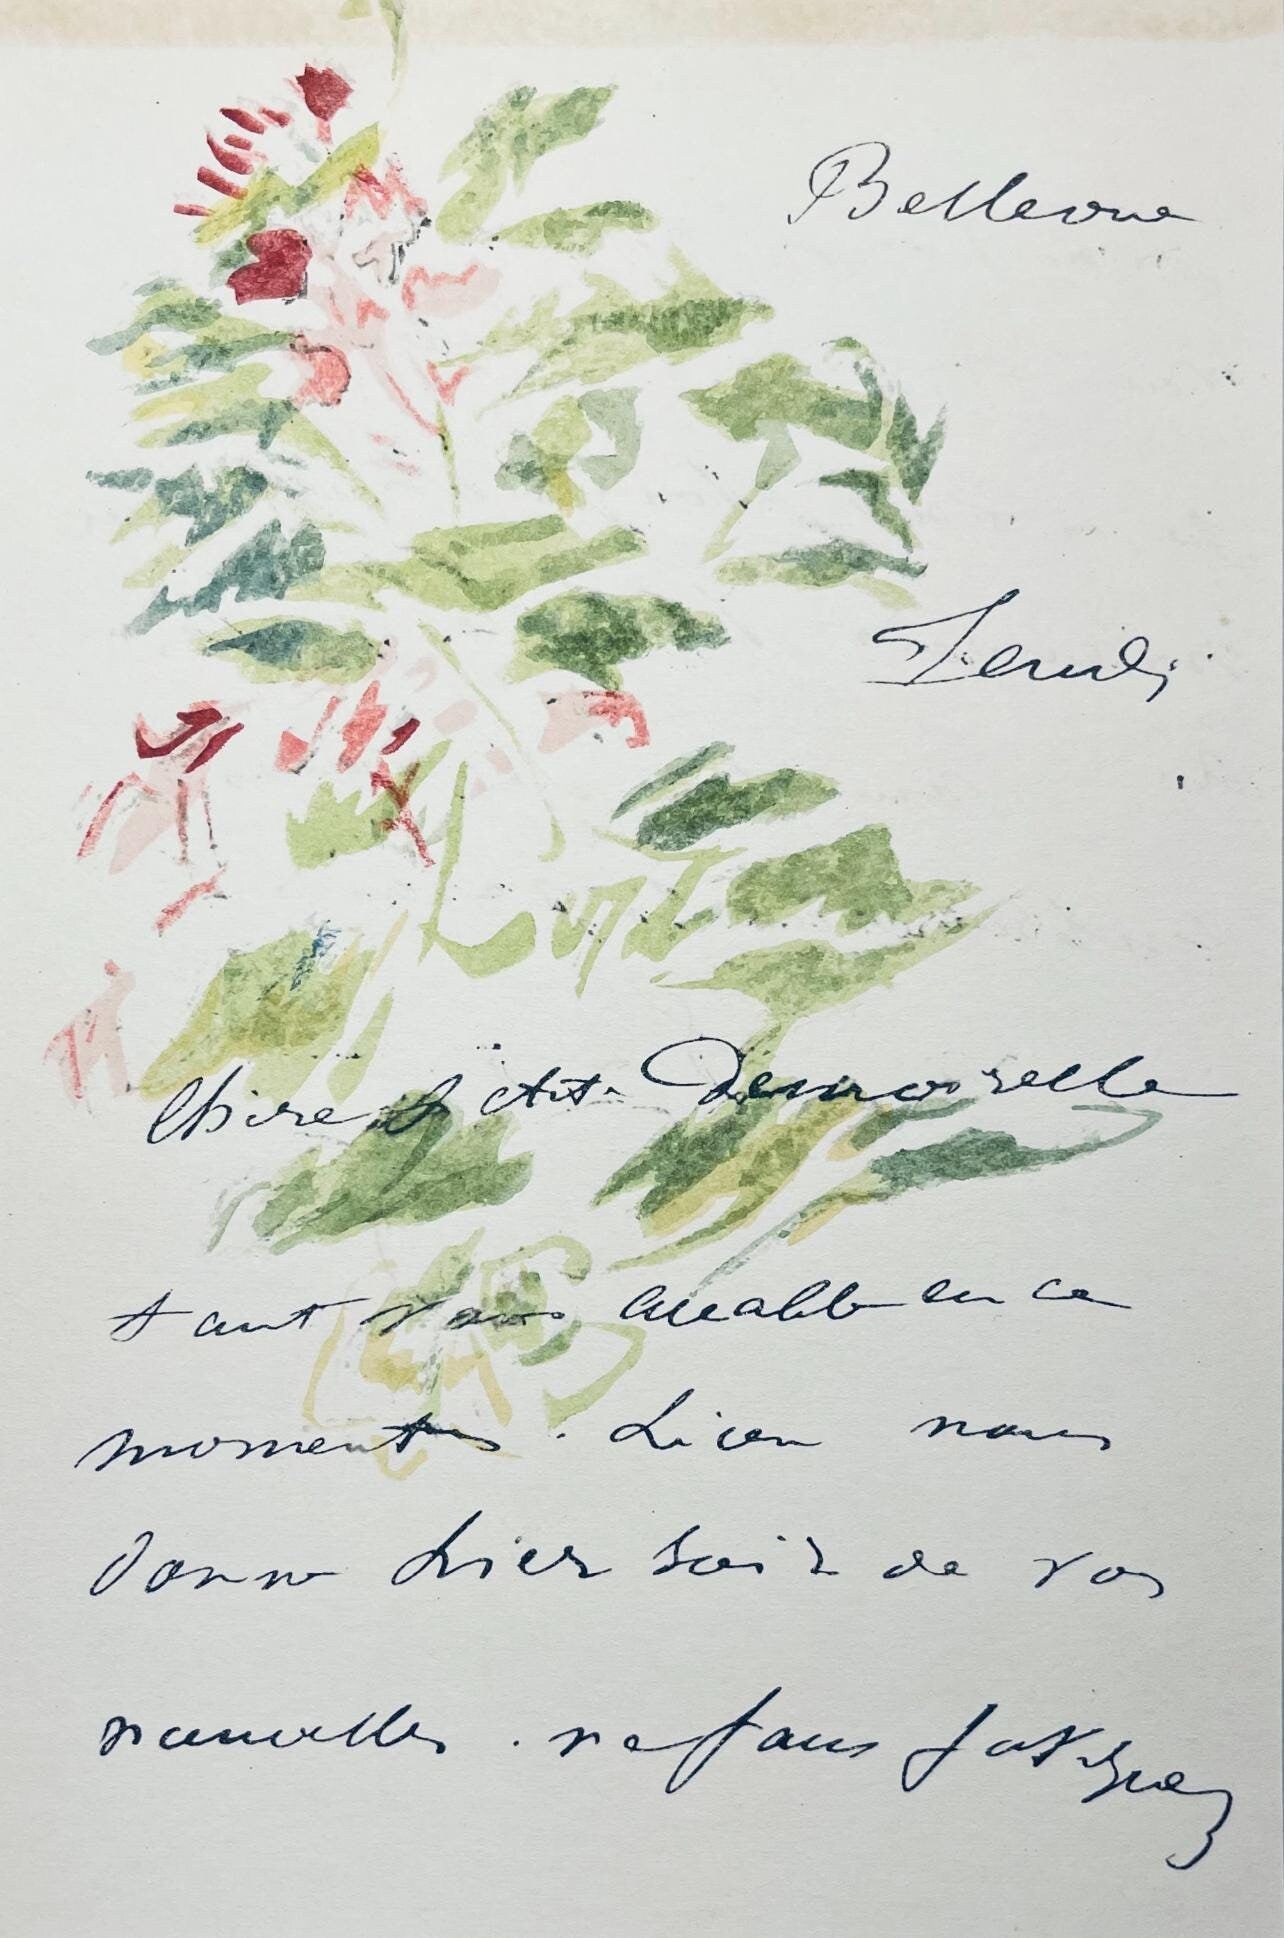 Bellevue
Jeudi
Chère petite Demoiselle
tant vous accable en ce
moments. Léon nous
donne hier soir de vos
nouvelles. ne fatiguez